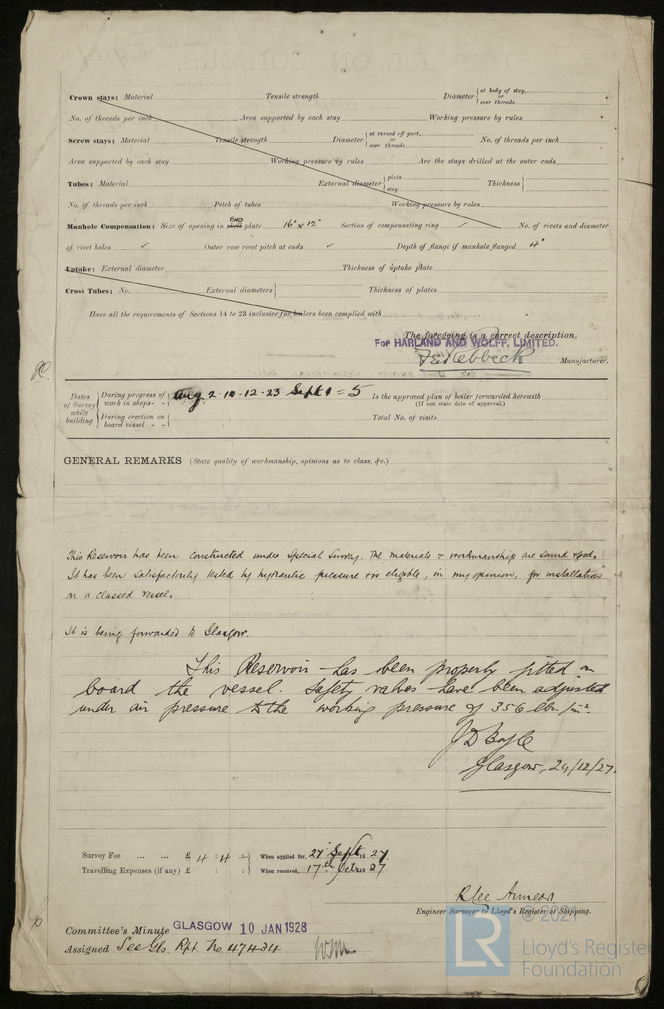 Crown stays: Material Tensile strength Diameter { at body of stay, or over threads
No. of threads per inch Area supported by each stay Working pressure by rules
Screw stays: Material Tensile strength Diameter { at turned off part, or over threads No. of threads per inch
Area supported by each stay Working pressure by rules Are the stays drilled at the outer ends
Tubes: Material External diameter { plain stay Thickness {
No. of threads per inch Pitch of tubes Working pressure by rules
Manhole Compensation: Size of opening in shell END plate 16" x 12" Section of compensating ring ✓ No. of rivets and diameter
of rivet holes ✓ Outer row rivet pitch at ends ✓ Depth of flange if manhole flanged 4"
Uptake: External diameter Thickness of uptake plate
Cross Tubes: No. External diameters { Thickness of plates
Have all the requirements of Sections 14 to 23 inclusive for boilers been complied with
The foregoing is a correct description,
For HARLAND AND WOLFF, LIMITED.
F E Rebbeck Manufacturer.
Dates of Survey while building { During progress of work in shops - - } Aug. 2-10-12-23 Sept 1 = 5 Is the approved plan of boiler forwarded herewith
(If not state date of approval.)
{ During erection on board vessel - - } Total No. of visits
GENERAL REMARKS (State quality of workmanship, opinions as to class, &c.)
This Reservoir has been constructed under Special Survey. The materials & workmanship are sound & good.
It has been satisfactorily tested by hydraulic pressure & is eligible, in my opinion, for installation
in a classed vessel.
It is being forwarded to Glasgow.
This Reservoir has been properly fitted on
board the vessel. Safety valves have been adjusted
under air pressure to the working pressure of 356 lbs./in².
J D Boyle
Glasgow, 29/12/27.
Survey Fee ... ... £ 4 : 4 : - } When applied for, 27 Sept 1927
Travelling Expenses (if any) £ : : } When received, 17th Oct 1927
R Lee
Engineer Surveyor to Lloyd's Register of Shipping.
Committee's Minute GLASGOW 10 JAN 1928
Assigned See Gls. Rpt No 47434
© 2021
LR
Lloyd's Register
Foundation